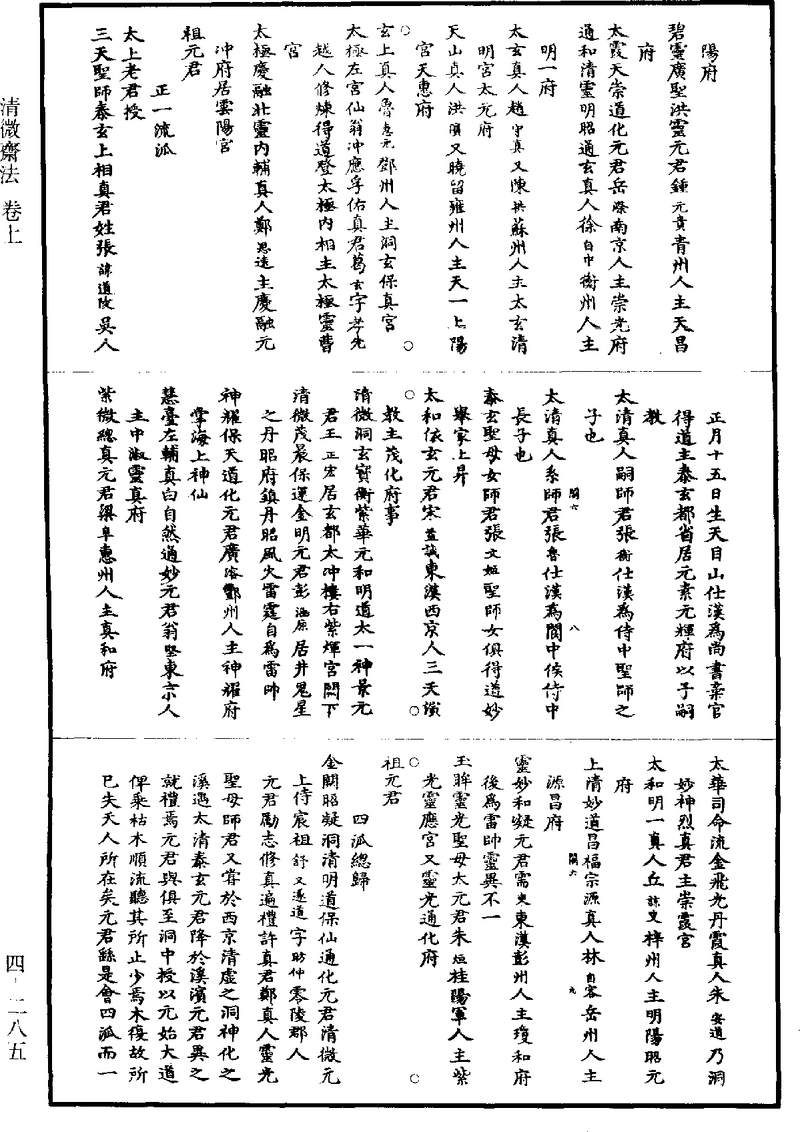 清微齋法 卷上
四-二八五
陽府
碧靈廣聖洪靈元君鍾元賁青州人主天昌
府
太霞天崇道化元君岳際南京人主崇光府
通和清靈明昭通玄真人徐自中衡州人主
明一府
太玄真人趙守真又陳拱蘇州人主太玄清
明宮太元府
天山真人洪又曉留雍州人主天一上陽
宮天惠府
○
玄上真人魯鄧州人主洞玄保真宮
太極左宮仙翁冲應孚佑真君葛玄字孝先
越人修煉得道登太極內相主太極靈曹
宮
太極慶融壯靈內輔真人鄭思遠主慶融元
冲府居雲陽宮
祖元君
正一流派
太上老君授
三天聖師泰玄上相真君姓張諱道陵吳人
正月十五日生天目山仕漢爲尚書棄官
得道主泰玄都省居元素元輝府以子嗣
教
太清真人嗣師君張衡仕漢爲侍中聖師之
子也
太清真人系師君張魯仕漢爲閬中侯侍中
長子也
泰玄聖母女師君張文姬聖師女俱得道妙
舉家上昇
太和依玄元君宋東漢西京人三天儀
教主茂化府事
清微洞玄寶衡紫華元和明道太一神景元
君王正宏居玄都太冲樓右紫煇宮闕下
清微茂晨保運金明元君彭居井鬼星
之丹昭府鎮丹昭風火雷霆自爲雷帥
神燿保天道化元君廣容鄷州人主神燿府
掌海上神仙
慧臺左輔真白自然通妙元君翁堅東京人
主中淑靈真府
紫微總真元君梁阜惠州人主真和府
太華司命流金飛光丹霞真人朱安道乃洞
妙神烈真君主崇霞宮
太和明一真人丘梓州人主明陽昭元
府
上清妙道昌福宗源真人林自容岳州人主
源昌府
靈妙和凝元君需史東漢彭州人主瓊和府
後爲雷帥靈異不一
玉眸靈光聖母太元君朱烜桂陽軍人主紫
光靈應宮又靈光通化府
祖元君
四派總歸
金闕昭凝洞清明道保仙通化元君清微元
上侍宸祖舒又遂道字昉仲零陵郡人
元君勵志修真遍禮許真君鄭真人靈光
聖母師君又嘗於西京清虛之洞神化之
溪遇太清泰玄元君降於溪濱元君異之
就禮焉元君與俱至洞中授以元始大道
俾乘枯木順流聽其所止少焉木復故所
已失天人所在矣元君繇是會四派而一